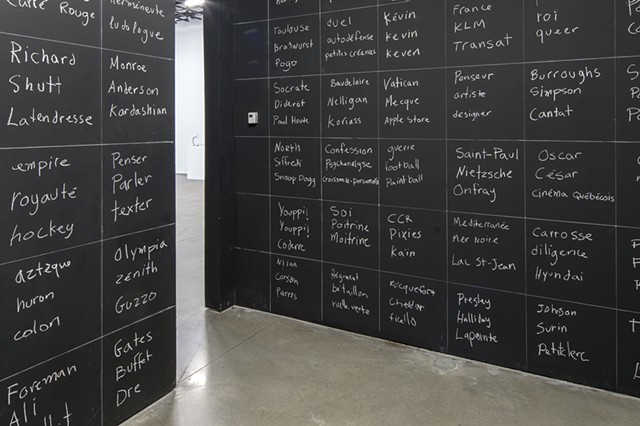 Carré Rouge
herméneute
ludologue
Richard
Shutt
Latendresse
Monroe
Anderson
Kardashian
empire
royauté
hockey
Penser
Parler
texter
aztèque
huron
colon
Olympia
zénith
Guzzo
Foreman
Ali
Gates
Buffet
Dre
Toulouse
Bratwurst
Pogo
duel
autodéfense
petites créances
Kévin
kevin
keven
France
KLM
Transat
roi
queer
Socrate
Diderot
Paul Houde
Baudelaire
Nelligan
Koriass
Vatican
Mecque
Apple Store
Penseur
artiste
designer
Burroughs
Simpson
Cantat
North
Siffredi
Snoop Dogg
Confession
Psychanalyse
croissance-personnelle
guerre
football
Paintball
Saint-Paul
Nietzsche
Onfray
Oscar
César
cinéma Québécois
Youppi!
Youppi!
Coderre
Soi
Poitrine
Moitrine
CCR
Pixies
Kaïn
Méditerranée
Mer Noire
Lac St-Jean
Carrosse
diligence
Hyundai
Nylan
Corson
Parros
Régiment
bataillon
ruelle verte
Rocquefort
Cheddar
ficello
Presley
Halliday
Lapointe
Johnson
Surin
Petitclerc